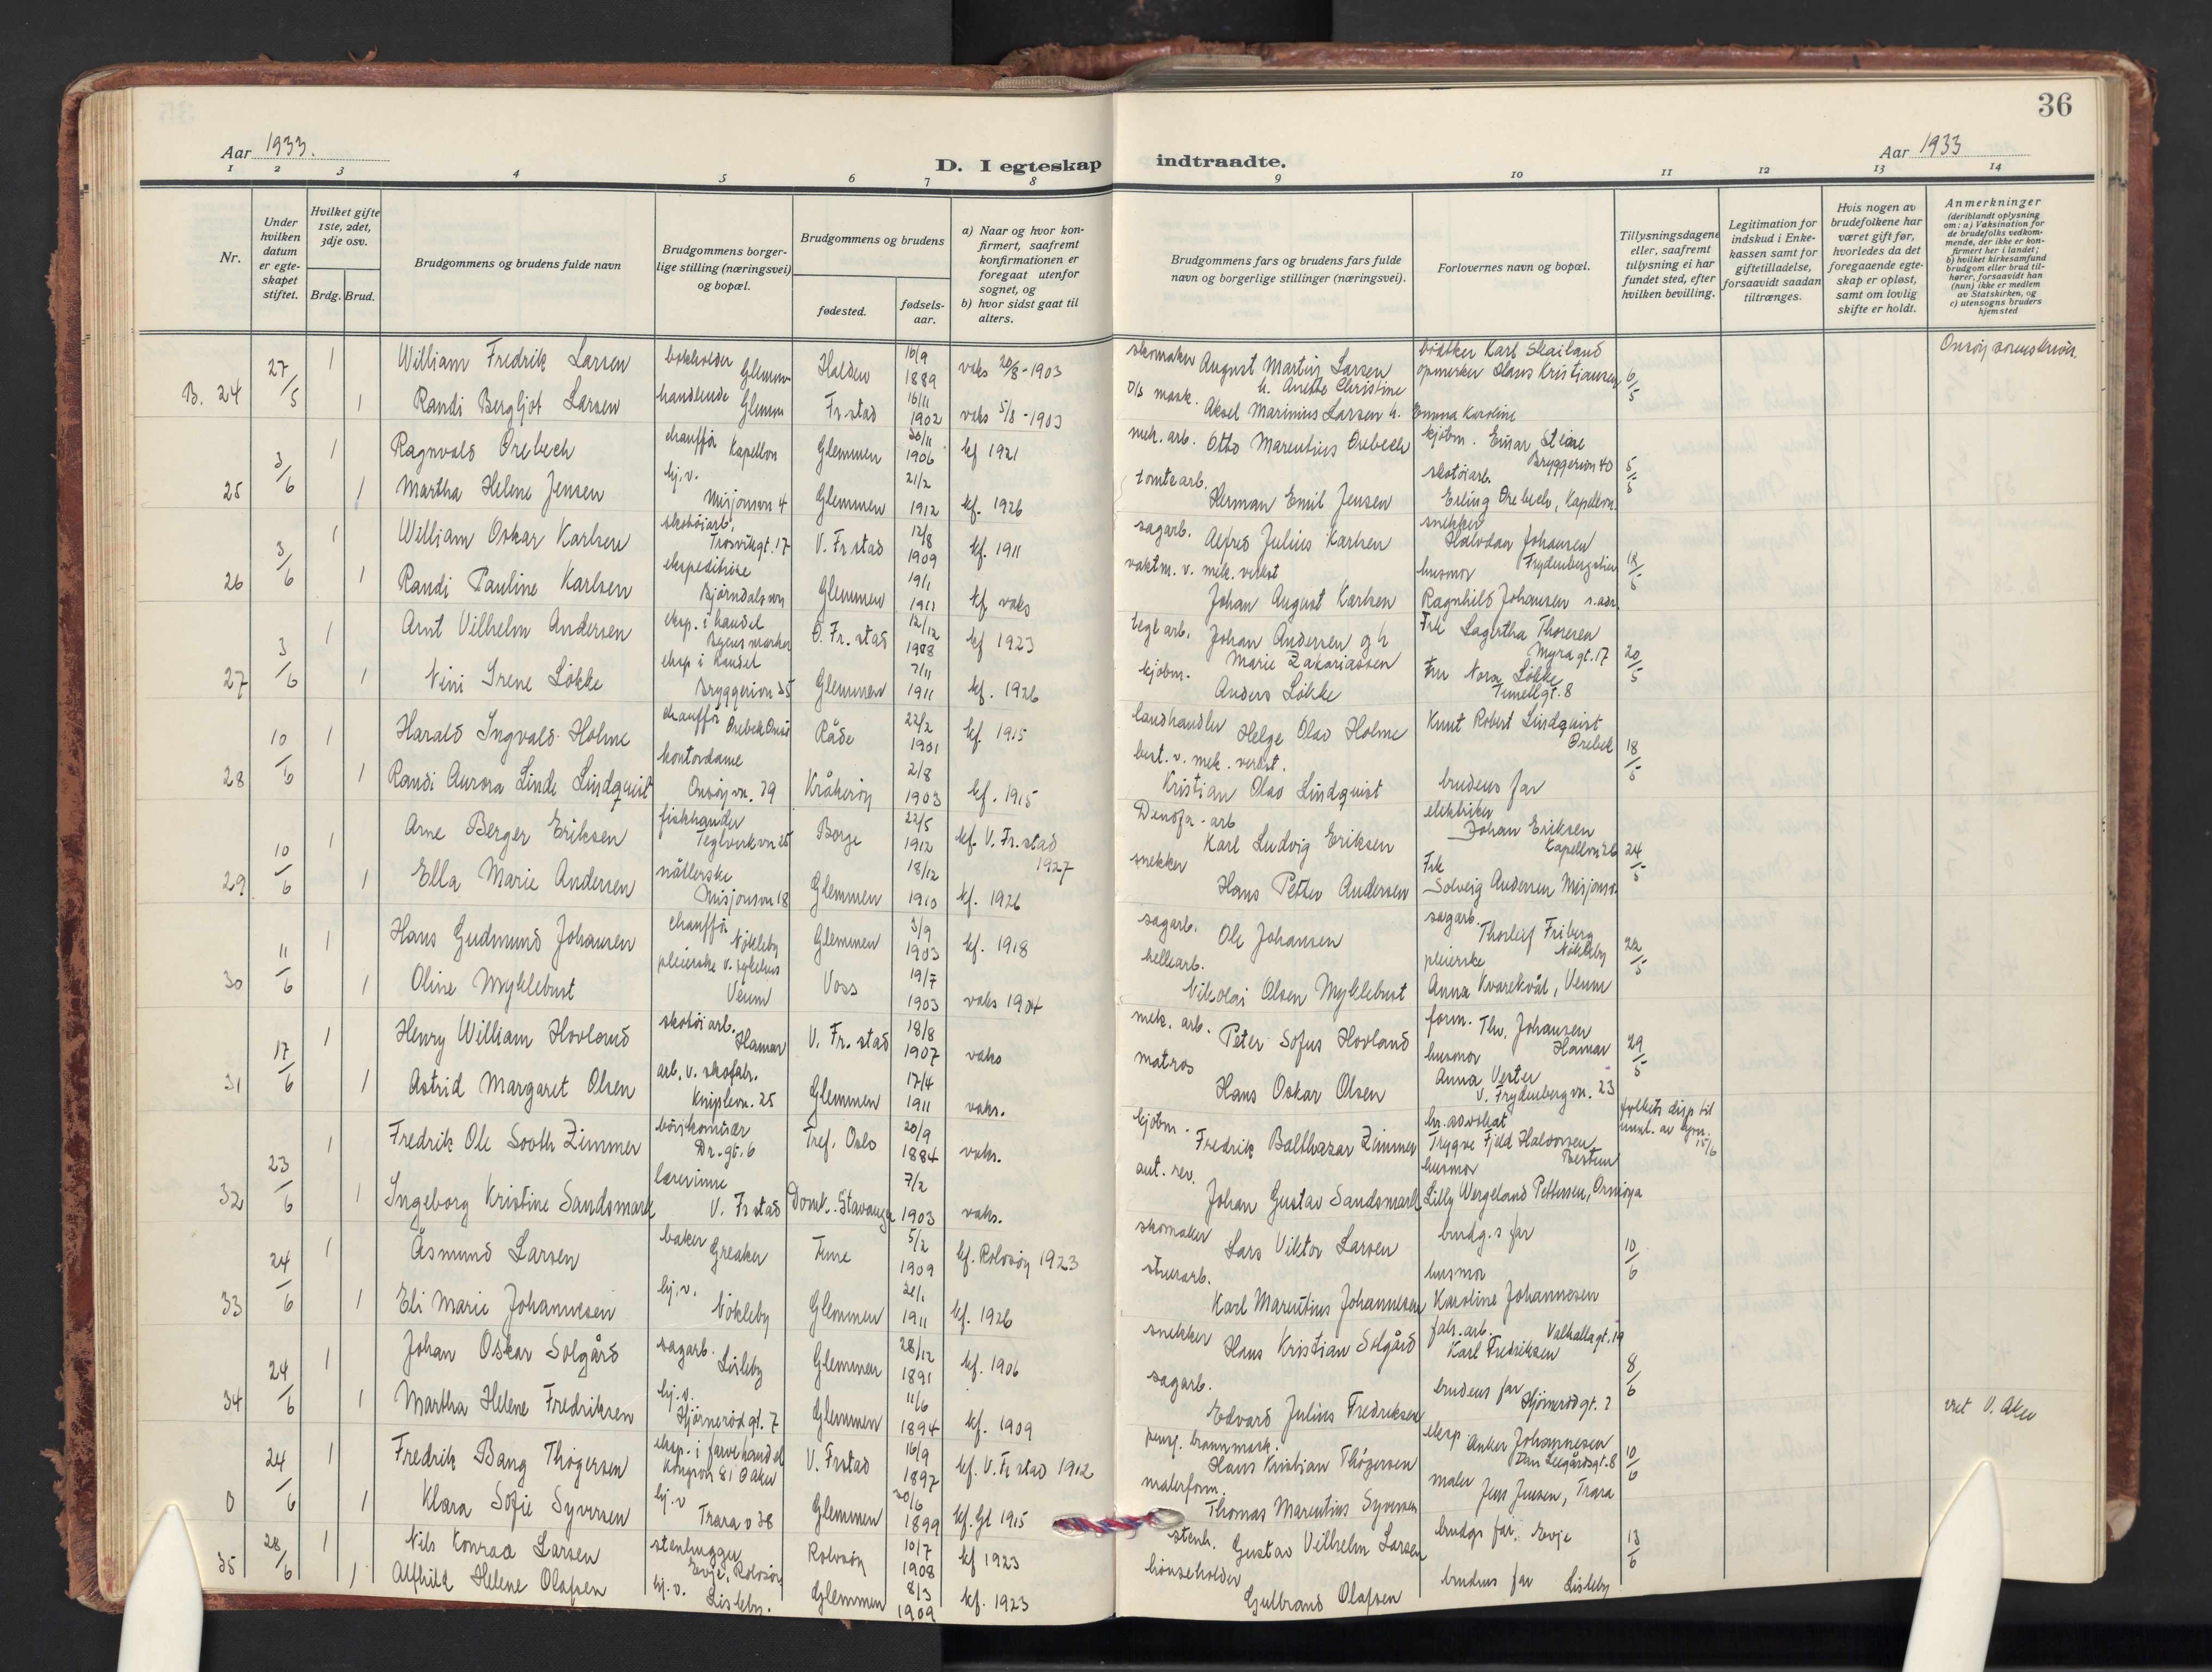 36
Aar 1933.
D. I egteskap indtraadte.
Aar 1933
1 2 3 4 5 6 7 8 9 10 11 12 13 14
Nr.
Under hvilken datum er egteskapet stiftet.
Hvilket gifte 1ste, 2det, 3dje osv.
Brdg. Brud.
Brudgommens og brudens fulde navn
Brudgommens borgerlige stilling (næringsvei) og bopæl.
Brudgommens og brudens
fødested.
fødselsaar.
a) Naar og hvor konfirmert, saafremt konfirmationen er foregaat utenfor sognet, og
b) hvor sidst gaat til alters.
Brudgommens fars og brudens fars fulde navn og borgerlige stillinger (næringsvei).
Forlovernes navn og bopæl.
Tillysningsdagene eller, saafremt tillysning ei har fundet sted, efter hvilken bevilling.
Legitimation for indskud i Enkekassen samt for giftetilladelse, forsaavidt saadan tiltrænges.
Hvis nogen av brudefolkene har været gift før, hvorledes da det foregaaende egteskap er opløst, samt om lovlig skifte er holdt.
Anmerkninger (deriblandt oplysning om: a) Vaksination for de brudefolks vedkommende, der ikke er konfirmert her i landet; b) hvilket kirkesamfund brudgom eller brud tilhører, forsaavidt han (hun) ikke er medlem av Statskirken, og c) utensogns bruders hjemsted
27/5 1 William Fredrik Larsen bokholder Glemmen Halden 16/9 1889 vaks 20/8-1903 skomaker August Martin Larsen h. Anette Christine bødker Karl Skailand 6/5 Onsøy sorenskriver.
B. 24 1 Randi Bergljot Larsen handlende Glemm Fr.stad 16/11 1902 vaks 5/8-1903 Aksel Marinius Larsen h. Emma Karoline opmerker Hans Kristiansen
3/6 1 Ragnvald Ørebech chauffør Kapellvn Glemmen 30/11 1906 kf 1921 mek. arb. Otto Marentius Ørebech kjøbm. Einar Stene Bryggerivn 40 5/5
25 1 Martha Helene Jensen hj.v. Misjonsvn 4 Glemmen 21/2 1912 kf. 1926 tomtearb. Herman Emil Jensen skotøiarb. Erling Ørebech, Kapellvn.
3/6 1 William Oskar Karlsen skotøiarb. Trosvikgt. 17 V. Fr.stad 12/8 1909 kf. 1911 sagarb. Alfred Julius Karlsen snekker Halvdan Johansen Frydenbergstien 18/5
26 1 Randi Pauline Karlsen ekspeditrise Bjørndalsvn Glemmen 19/1 1911 kf. vaks vaktm. v. mek. verkst Johan August Karlsen husmor Ragnhild Johansen s. adr.
3/6 1 Arnt Vilhelm Andersen eksp. i handel Ø. Fr.stad 12/12 1908 kf 1923 teglarb. Johan Andersen og h Marie Zakariassen Frk Lagertha Thoresen Myragt. 17 20/5
27 1 Nini Irene Løkke eksp i handel Bryggerivn 35 Glemmen 7/11 1911 kf. 1926 kjøbm. Anders Løkke Fru Nora Løkke Tunellgt. 8
10/6 1 Harald Ingvald Holme chauffør Ørebek Onsø Råde 22/2 1901 kf. 1915 landhandler Helge Olav Holme Knut Robert Lindquist Ørebek 18/5
28 1 Randi Aurora Linde Lindquist kontordame Onsøyvn. 79 Kråkerøy 2/8 1903 kf. 1915 best. v. mek. verkst. Kristian Olav Lindquist brudens far
10/6 1 Arne Berger Eriksen fiskhandler Teglverkvn 25 Borge 22/5 1912 kf. V. Fr.stad 1927 Denofa-arb Karl Ludvig Eriksen elektriker Johan Eriksen Kapellvn 26 24/5
29 1 Ella Marie Andersen nåtlerske Misjonsvn 18 Glemmen 18/12 1910 kf. 1926 snekker Hans Petter Andersen Frk Solveig Andersen Misjonsv.
11/6 1 Hans Gudmund Johansen chauffør Nøkleby Glemmen 3/9 1903 kf. 1918 sagarb. Ole Johansen sagarb. Thorleif Friberg Nøkleby 22/5
30 1 Oline Myklebust pleierske v. sykehus Veum Voss 19/7 1903 vaks 1904 hellearb. Nikolai Olsen Myklebust pleierske Anna Kvarekvål, Veum
17/6 1 Henry William Hovland skotøiarb. Hamar V. Fr.stad 18/8 1907 vaks mek. arb. Peter Sofus Hovland form. Thv. Johansen Hamar 29/5
31 1 Astrid Margaret Olsen arb. v. skofabr. Kniplevn. 25 Glemmen 17/4 1911 vaks. matros Hans Oskar Olsen husmor Anna Vester V. Frydenbergvn. 23
23/6 1 Fredrik Ole Sooth Zimmer Dr.gt. 6 Tref. Oslo 20/9 1884 vaks. kjøbm. Fredrik Balthazar Zimmer hr. advokat Trygve Fjeld Halvorsen Bestum fylkets disp til unnl. av lysn. 15/6
32 1 Ingeborg Kristine Sandsmark lærerinne V. Fr stad Domk. Stavanger 7/2 1903 vaks. aut. rev. Johan Gustav Sandsmark husmor Lilly Wergeland Pettersen, Ormøya
24/6 1 Åsmund Larsen baker Greaker Tune 5/2 1909 kf. Rolvsøy 1923 skomaker Lars Viktor Larsen brudg.s far 10/6
33 1 Eli Marie Johannesen hj.v. Nøkleby Glemmen 21/1 1911 kf. 1926 stuerarb. Karl Marentius Johannesen husmor Karoline Johannesen
24/6 1 Johan Oskar Solgård sagarb. Lisleby Glemmen 28/12 1891 kf. 1906 snekker Hans Kristian Solgård fabr. arb. Valhallagt. 19 Karl Fredriksen 8/6
34 1 Martha Helene Fredriksen hj.v. Hjørnerødgt. 7 Glemmen 11/6 1894 kf. 1909 sagarb. Edvard Julius Fredriksen brudens far Hjørnerødgt. 7 V. Aker
24/6 1 Fredrik Bang Thøgersen eksp. i farvehandel Kongsvn 81 Ø Aker V. Frstad 16/9 1897 kf. V. Fr stad 1912 pensj. brannmask. Hans Kristian Thøgersen eksp Anker Johannesen Dam Leegårdsgt. 8 10/6
0 1 Klara Sofie Syversen hj.v Trarav 38 Glemmen 20/6 1899 kf. Gl 1915 malerform. Thomas Marentius Syversen maler Jens Jensen, Trara
28/6 1 Nils Konrad Larsen stenhugger Evje, Rolvsøy Rolvsøy 10/7 1908 kf 1923 stenh. Gustav Vilhelm Larsen brudgs far Evje 13/6
35 1 Alfhild Helene Olafsen hj.v. Lisleby. Glemmen 8/3 1909 kf. 1923 hønseholder Gulbrand Olafsen brudens far Lisleby